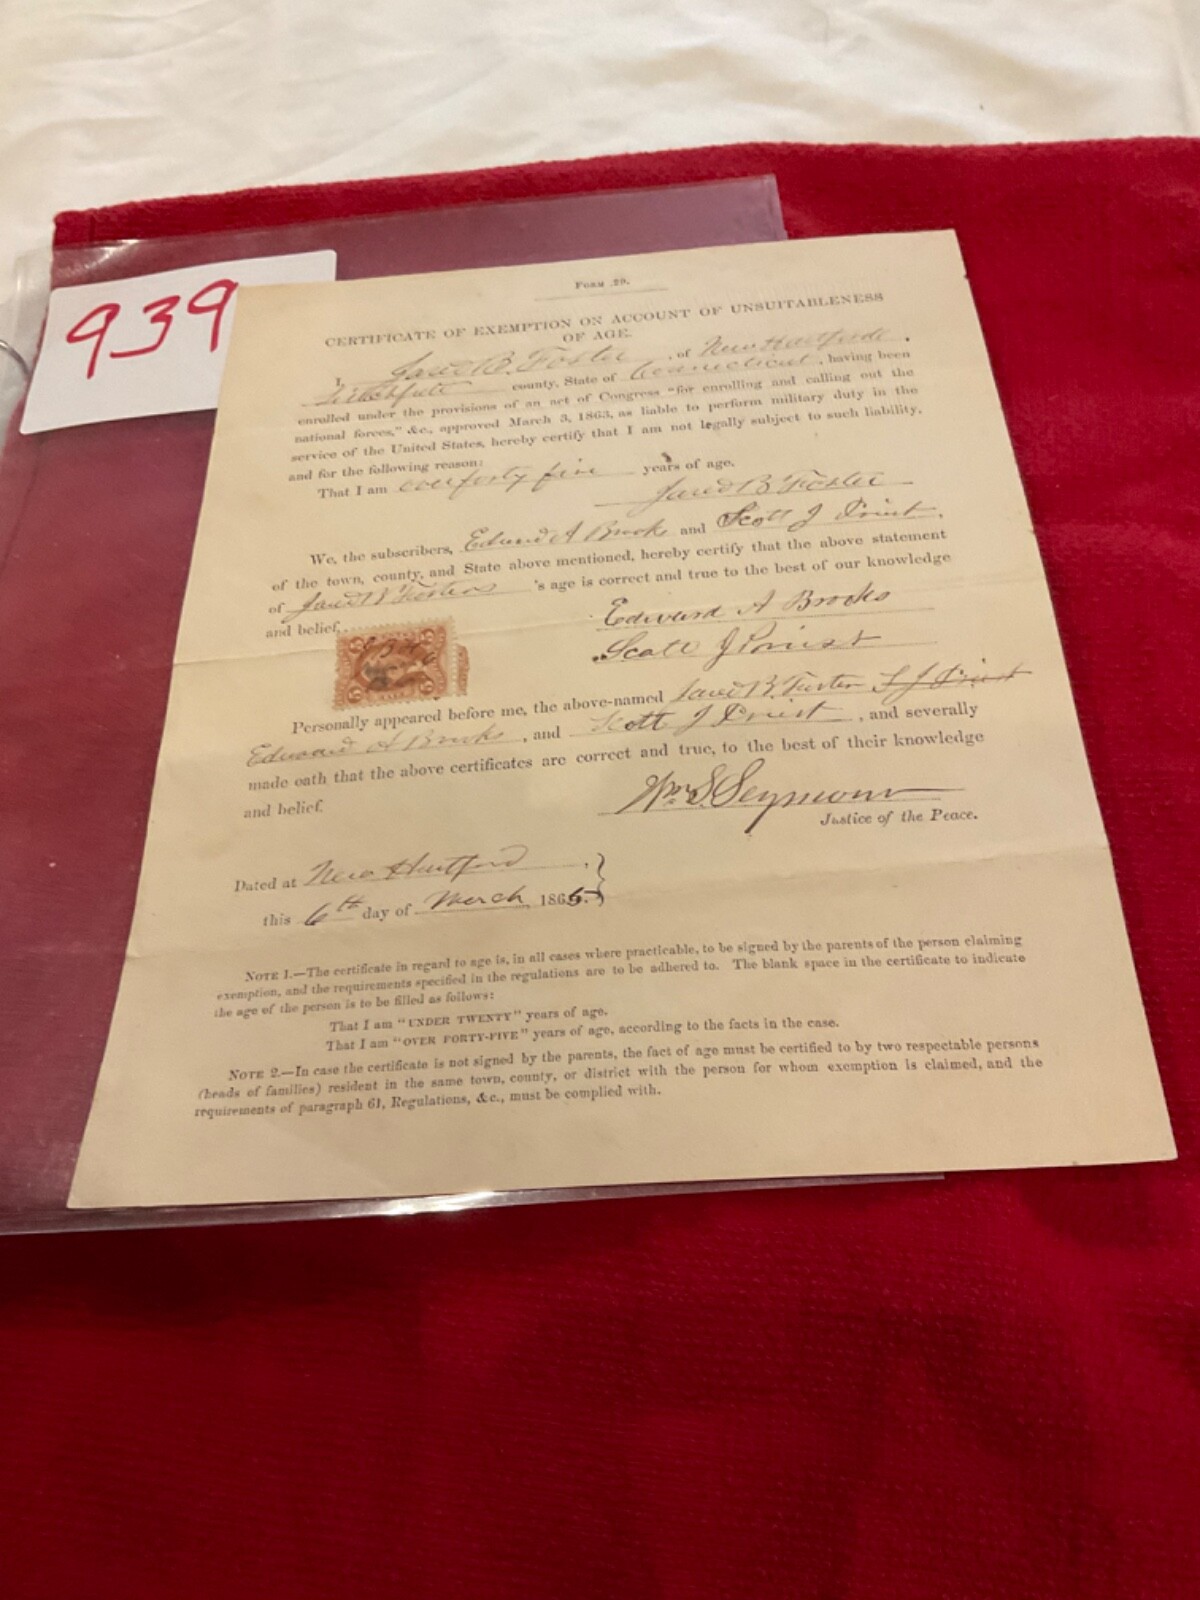 939
Form 29.
CERTIFICATE OF EXEMPTION ON ACCOUNT OF UNSUITABLENESS
OF AGE.
I, Jared B. Foster, of New Hartford,
Litchfield county, State of Connecticut, having been
enrolled under the provisions of an act of Congress "for enrolling and calling out the
national forces," &c., approved March 3, 1863, as liable to perform military duty in the
service of the United States, hereby certify that I am not legally subject to such liability,
and for the following reason:
That I am over forty five years of age.
Jared B Foster
We, the subscribers, Edward A Brooks and Scott J Priest,
of the town, county, and State above mentioned, hereby certify that the above statement
of Jared B Fosters 's age is correct and true to the best of our knowledge
and belief.
Edward A Brooks
Scott J Priest
Personally appeared before me, the above-named Jared B. Foster S J Priest
Edward A Brooks, and Scott J Priest, and severally
made oath that the above certificates are correct and true, to the best of their knowledge
and belief.
Wm. S. Seymour
Justice of the Peace.
Dated at New Hartford
this 6th day of March 1865.
NOTE 1.—The certificate in regard to age is, in all cases where practicable, to be signed by the parents of the person claiming
exemption, and the requirements specified in the regulations are to be adhered to. The blank space in the certificate to indicate
the age of the person is to be filled as follows:
That I am "UNDER TWENTY" years of age.
That I am "OVER FORTY-FIVE" years of age, according to the facts in the case.
NOTE 2.—In case the certificate is not signed by the parents, the fact of age must be certified to by two respectable persons
(heads of families) resident in the same town, county, or district with the person for whom exemption is claimed, and the
requirements of paragraph 61, Regulations, &c., must be complied with.